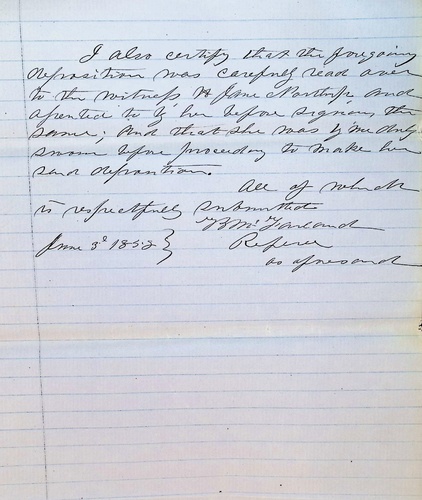 I also certify that the foregoing
deposition was carefully read over
to the witness H Jane Northup and
assented to by her before signing the
same; And that she was by me duly
sworn before proceeding to make her
said deposition.
All of which
is respectfully submitted
B McFarland
June 3d 1852 } Referee
as aforesaid